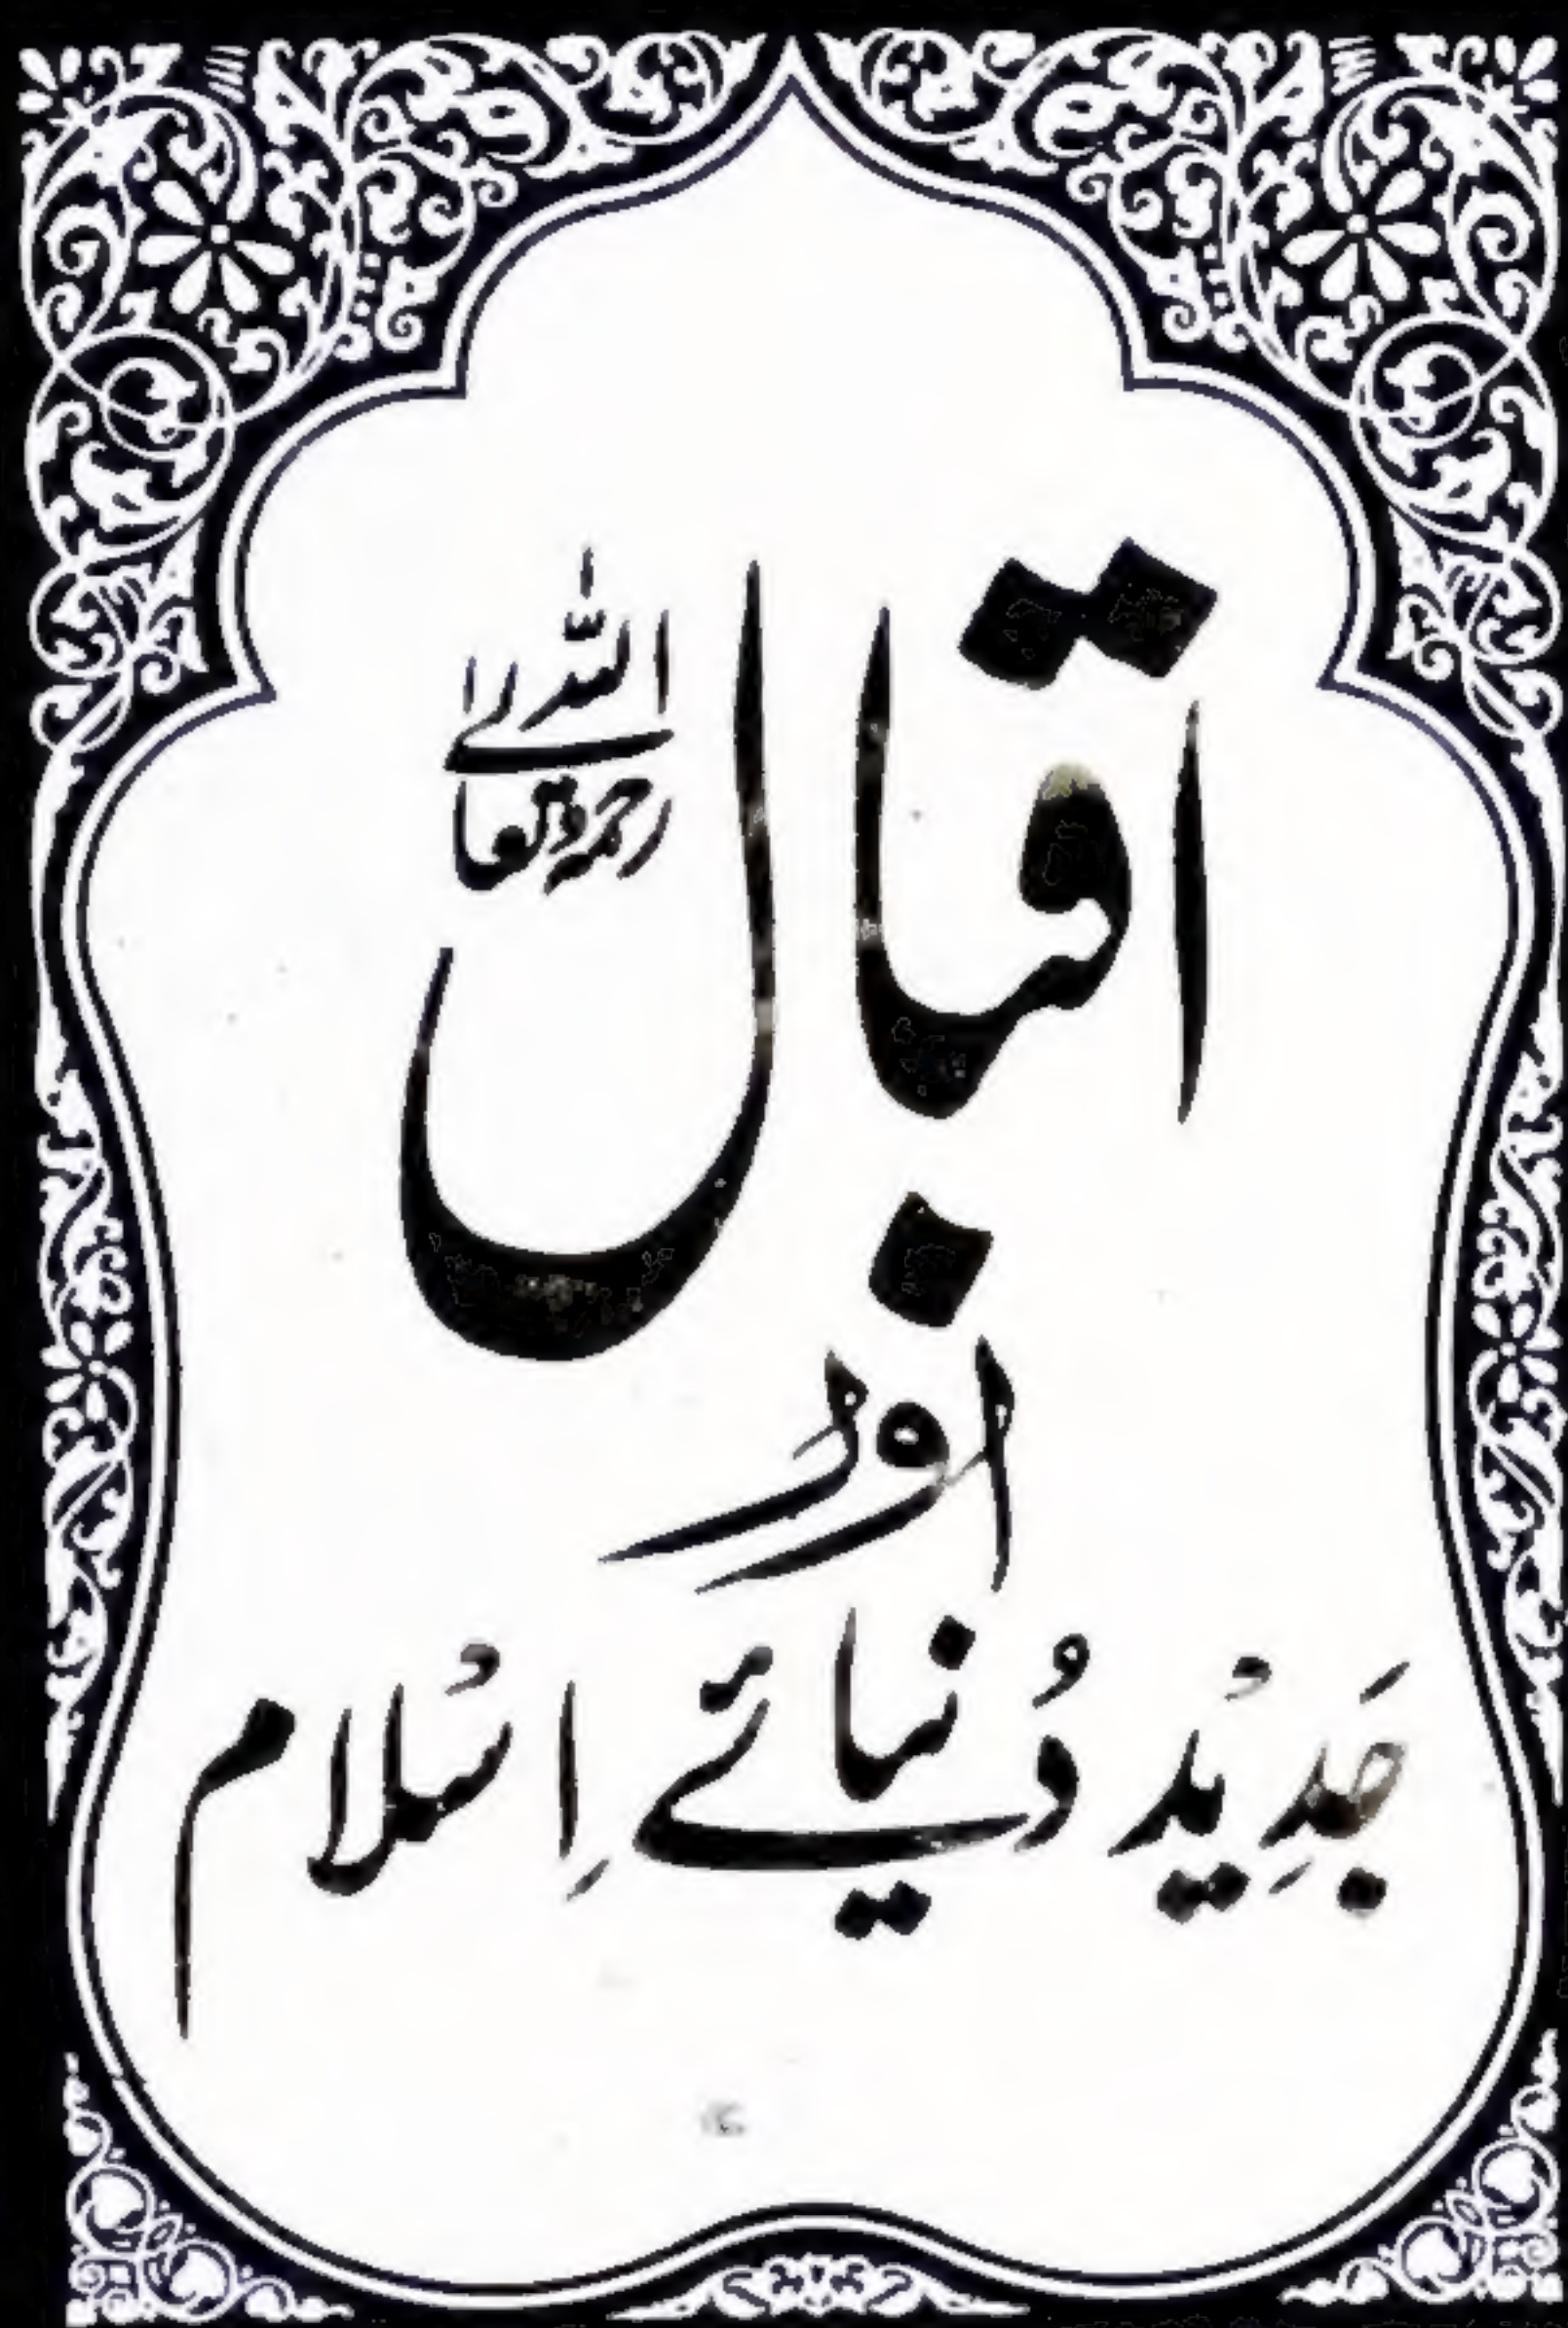 اقبال رحمۃ اللہ تعالیٰ
اور
جَدِیْد دُنیائے اِسْلام